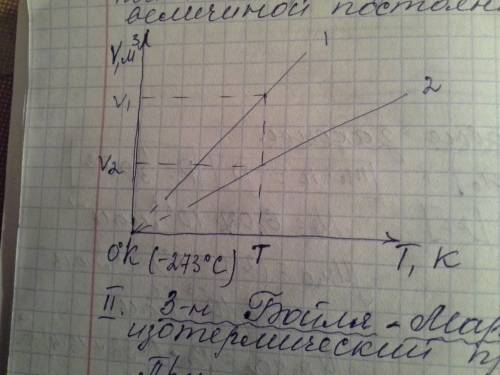 величиной постоян
V, м³
1
V₁
2
V₂
0°К (-273°С) T T, К
II. З-н Бойля - Мар
изотермический пр